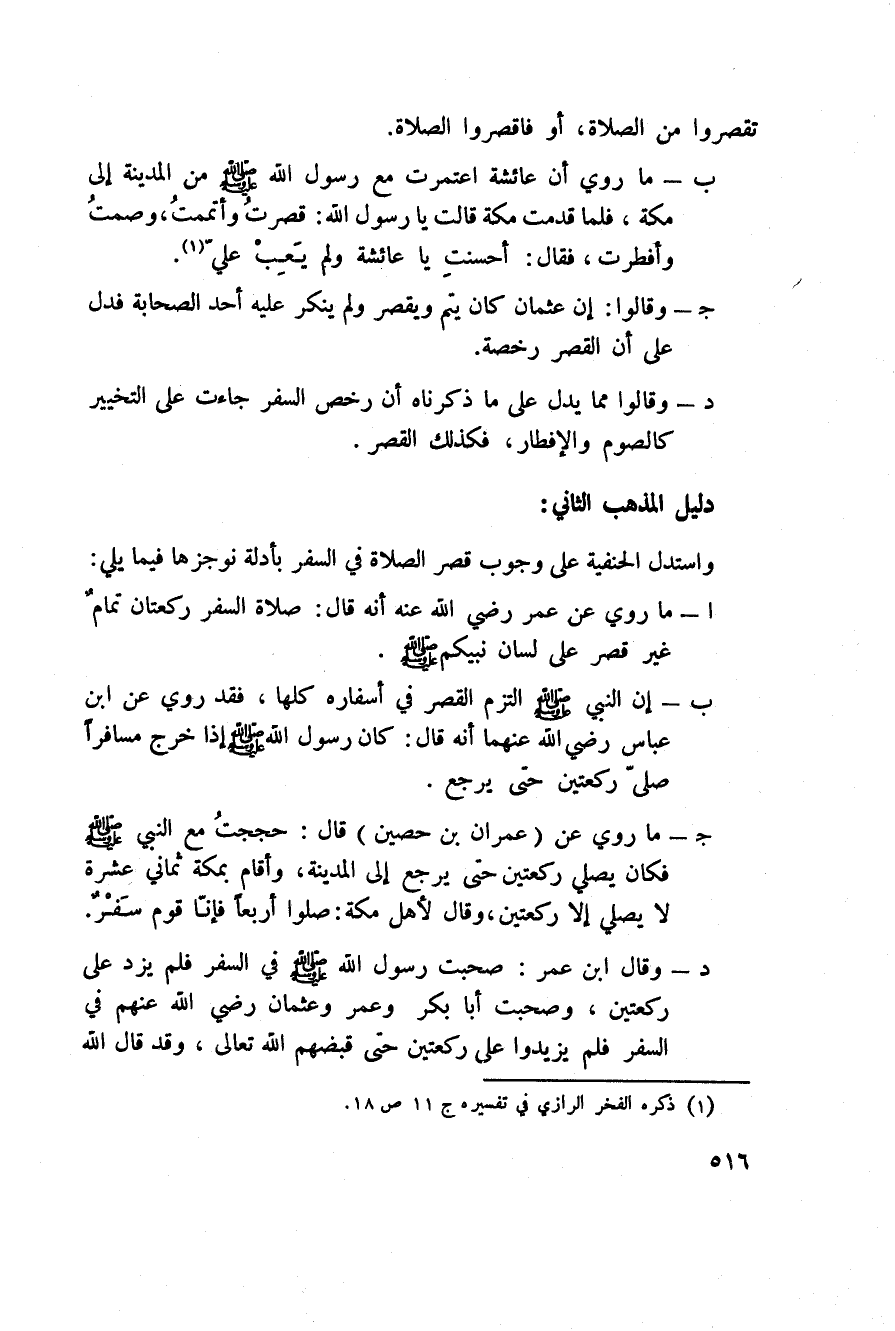 تقصروا من الصلاة، أو فاقصروا الصلاة.
ب ــ ما روي أن عائشة اعتمرت مع رسول الله ﷺ من المدينة إلى
مكة ، فلما قدمت مكة قالت يا رسول الله: قصرتُ وأتممتُ،وصمتُ
وأفطرت ، فقال: أحسنتِ يا عائشة ولم يَعِبْ عليّ(١).
جـ ــ وقالوا: إن عثمان كان يتم ويقصر ولم ينكر عليه أحد الصحابة فدل
على أن القصر رخصة.
د ــ وقالوا مما يدل على ما ذكرناه أن رخص السفر جاءت على التخيير
كالصوم والإفطار، فكذلك القصر .
دليل المذهب الثاني:
واستدل الحنفية على وجوب قصر الصلاة في السفر بأدلة نوجزها فيما يلي:
ا ــ ما روي عن عمر رضي الله عنه أنه قال: صلاة السفر ركعتان تمامٌ
غير قصر على لسان نبيكم ﷺ .
ب ــ إن النبي ﷺ التزم القصر في أسفاره كلها ، فقد روي عن ابن
عباس رضي الله عنهما أنه قال: كان رسول الله ﷺ إذا خرج مسافراً
صلىّ ركعتين حتى يرجع .
جـ ــ ما روي عن ( عمران بن حصين ) قال : حججتُ مع النبي ﷺ
فكان يصلي ركعتين حتى يرجع إلى المدينة، وأقام بمكة ثماني عشرة
لا يصلي إلا ركعتين،وقال لأهل مكة:صلوا أربعاً فإنّا قوم سَفْرٌ.
د ــ وقال ابن عمر : صحبت رسول الله ﷺ في السفر فلم يزد على
ركعتين ، وصحبت أبا بكر وعمر وعثمان رضي الله عنهم في
السفر فلم يزيدوا على ركعتين حتى قبضهم الله تعالى ، وقد قال الله
(١) ذكره الفخر الرازي في تفسيره ج ١١ ص ١٨.
٥١٦